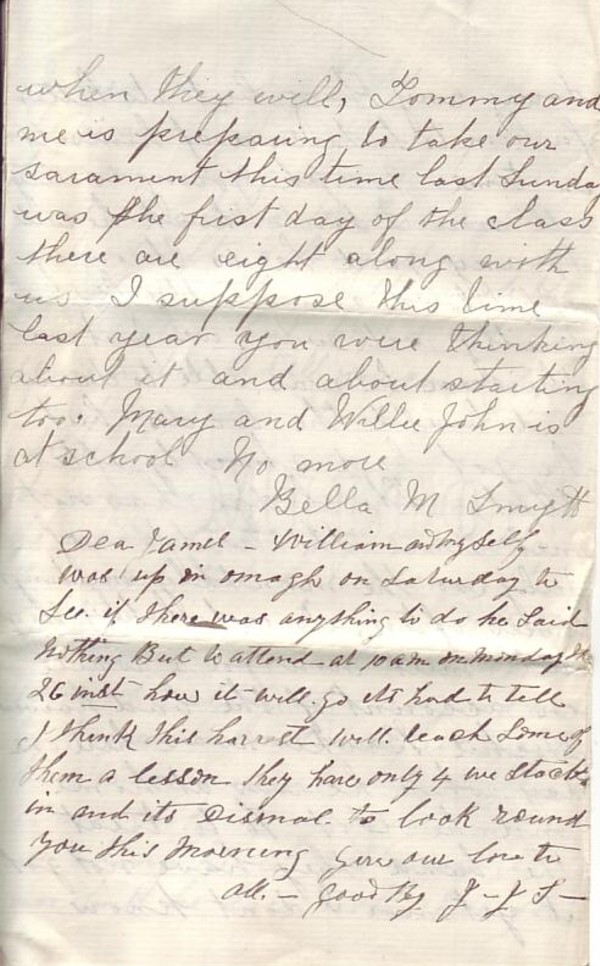 when they will, Tommy and
me is preparing to take our
sarament this time last Sunday
was the first day of the class
there are eight along with
us I suppose this time
last year you were thinking
about it and about starting
too. Mary and Willie John is
at school No more
Bella M Smyth
Dear James - William and myself
was up in omagh on Saturday to
See if there was anything to do he Said
Nothing But to attend at 10 am on Monday the
26 inst how it will go its hard to tell
I think this harvest will teach Some of
them a lesson they have only 4 wee Stacks
in and its Dismal to look round
you this Morning give our love to
all. - good By J - J S -